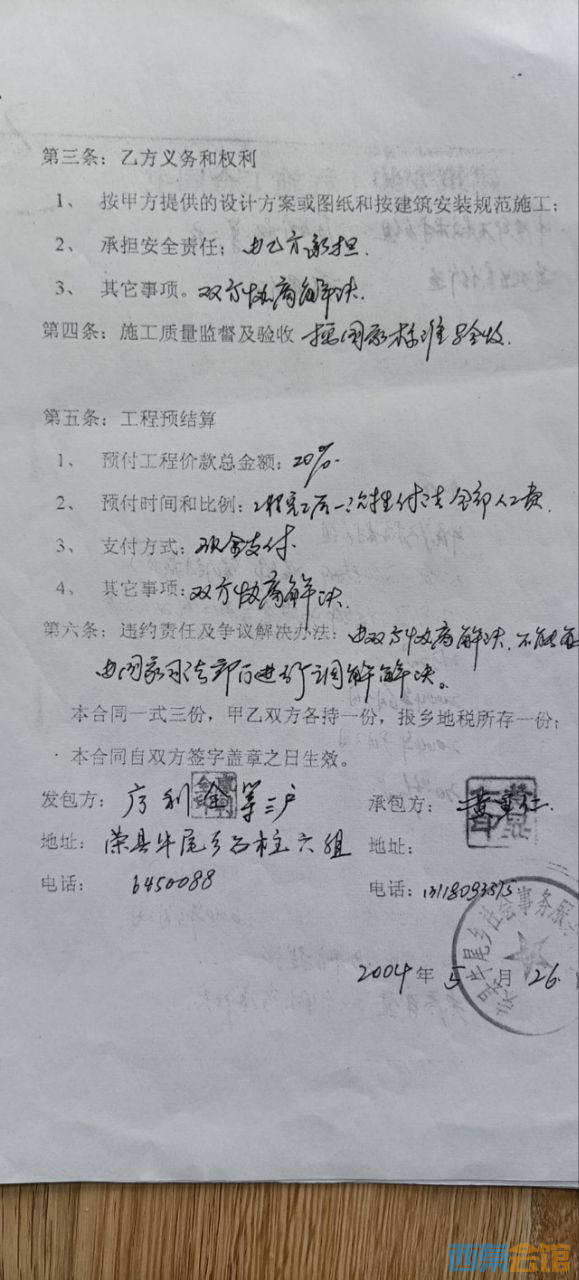 第三条：乙方义务和权利
1、 按甲方提供的设计方案或图纸和按建筑安装规范施工；
2、 承担安全责任：由乙方承担.
3、 其它事项。双方协商解决.
第四条：施工质量监督及验收 按国家标准验收.
第五条：工程预结算
1、 预付工程价款总金额：20%.
2、 预付时间和比例：工程完工后一次性付清全部人工费.
3、 支付方式：现金支付.
4、 其它事项：双方协商解决.
第六条：违约责任及争议解决办法：由双方协商解决.不能
由国家司法部门进行调解解决。
本合同一式三份，甲乙双方各持一份，报乡地税所存一份；
本合同自双方签字盖章之日生效。
发包方： 利金等三户 承包方：黄
地址：荣县牛尾乡石柱六组 地址：
电话： 6450088 电话：
牛尾乡社会事务服
2004年5月26
西泵会馆